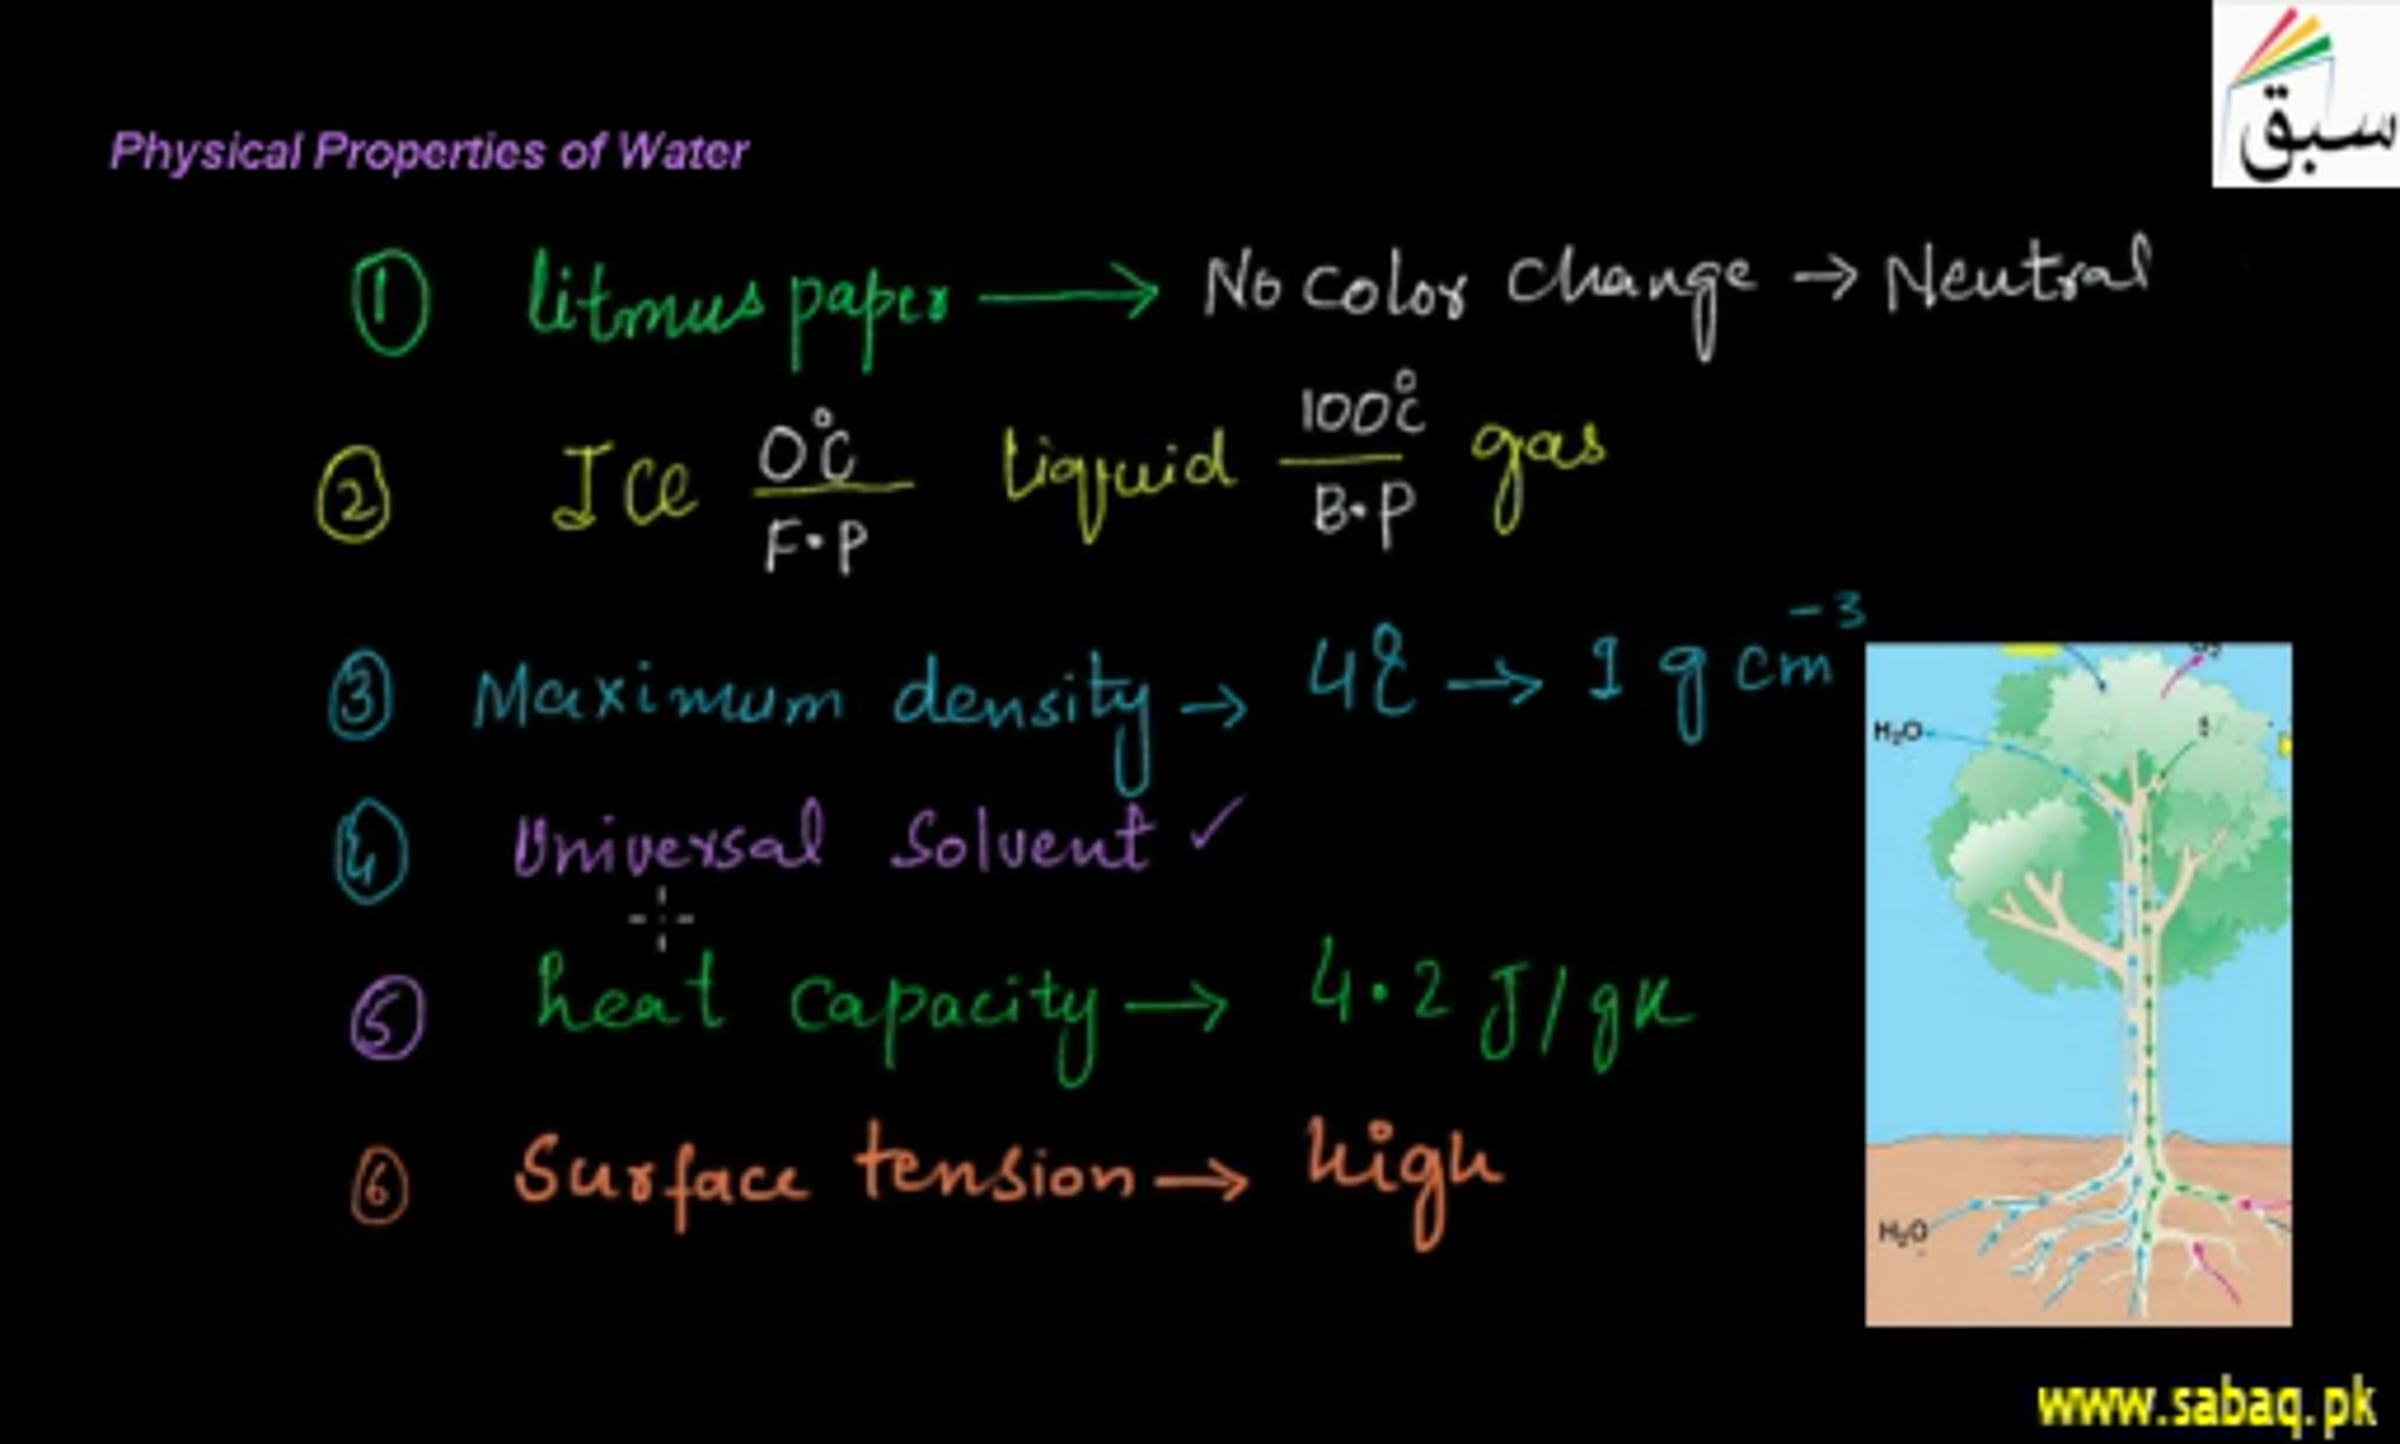 سبق
Physical Properties of Water
① litmus paper → No Color Change → Neutral
② Ice 0°C F.P liquid 100°C B.P gas
③ Maximum density → 4°C → 1 g cm⁻³
④ Universal Solvent ✓
⑤ heat capacity → 4.2 J/gK
⑥ Surface tension → high
H₂O
H₂O
www.sabaq.pk